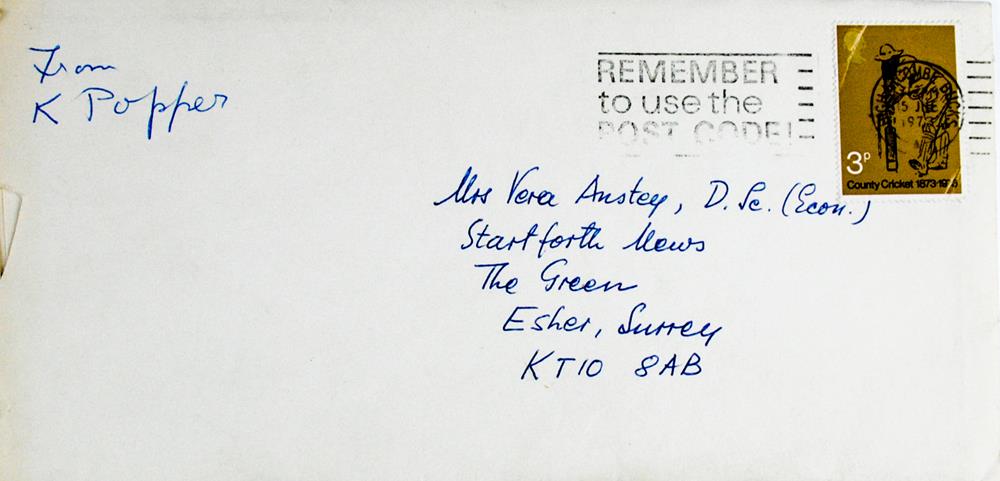 From
K Popper
REMEMBER
to use the
POST CODE!
3P
County Cricket 1873-1973
Mrs Vera Anstey, D. Sc. (Econ.)
Startforth Mews
The Green
Esher, Surrey
KT10 8AB